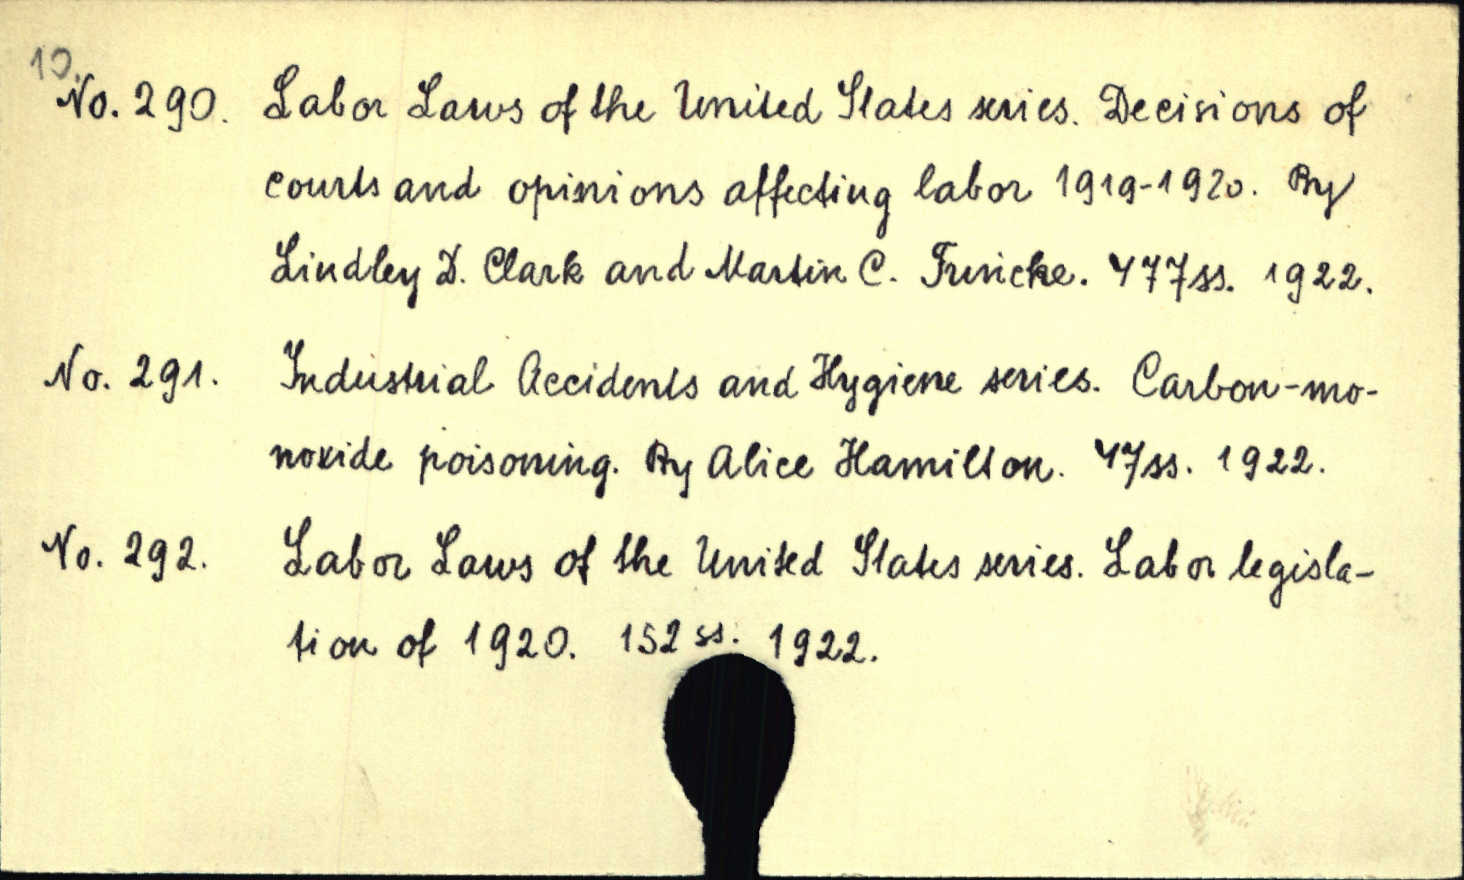 10.
No. 290. Labor Laws of the United States series. Decisions of
courts and opinions affecting labor 1919-1920. By
Lindley D. Clark and Martin C. Frincke. 477ss. 1922.
No. 291. Industrial Accidents and Hygiene series. Carbon-mo-
noxide poisoning. By Alice Hamilton. 47ss. 1922.
No. 292. Labor Laws of the United States series. Labor legisla-
tion of 1920. 152 ss. 1922.